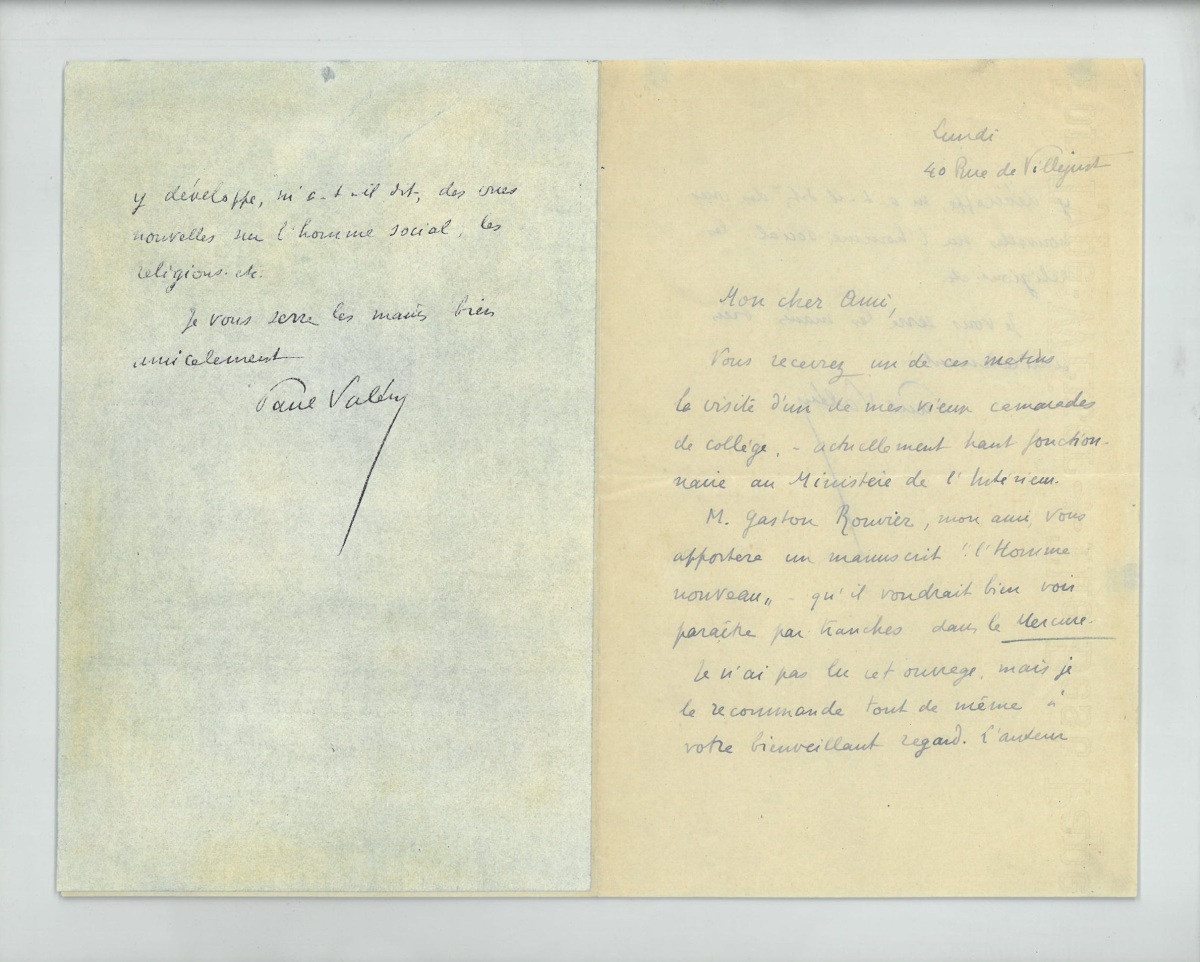 Lundi
40 Rue de Villejust
Mon cher Ami,
Vous recevrez un de ces matins
la visite d'un de mes vieux camarades
de collège, - actuellement haut fonction-
naire au Ministère de l'Intérieur.
M. Gaston Rouvier, mon ami, vous
apportera un manuscrit "l'Homme
nouveau" - qu'il voudrait bien voir
paraître par tranches dans le Mercure.
Je n'ai pas lu cet ouvrage, mais je
le recommande tout de même à
votre bienveillant regard. L'auteur
y développe, m'a-t-il dit, des vues
nouvelles sur l'homme social, les
religions. etc.
Je vous serre les mains bien
amicalement
Paul Valéry